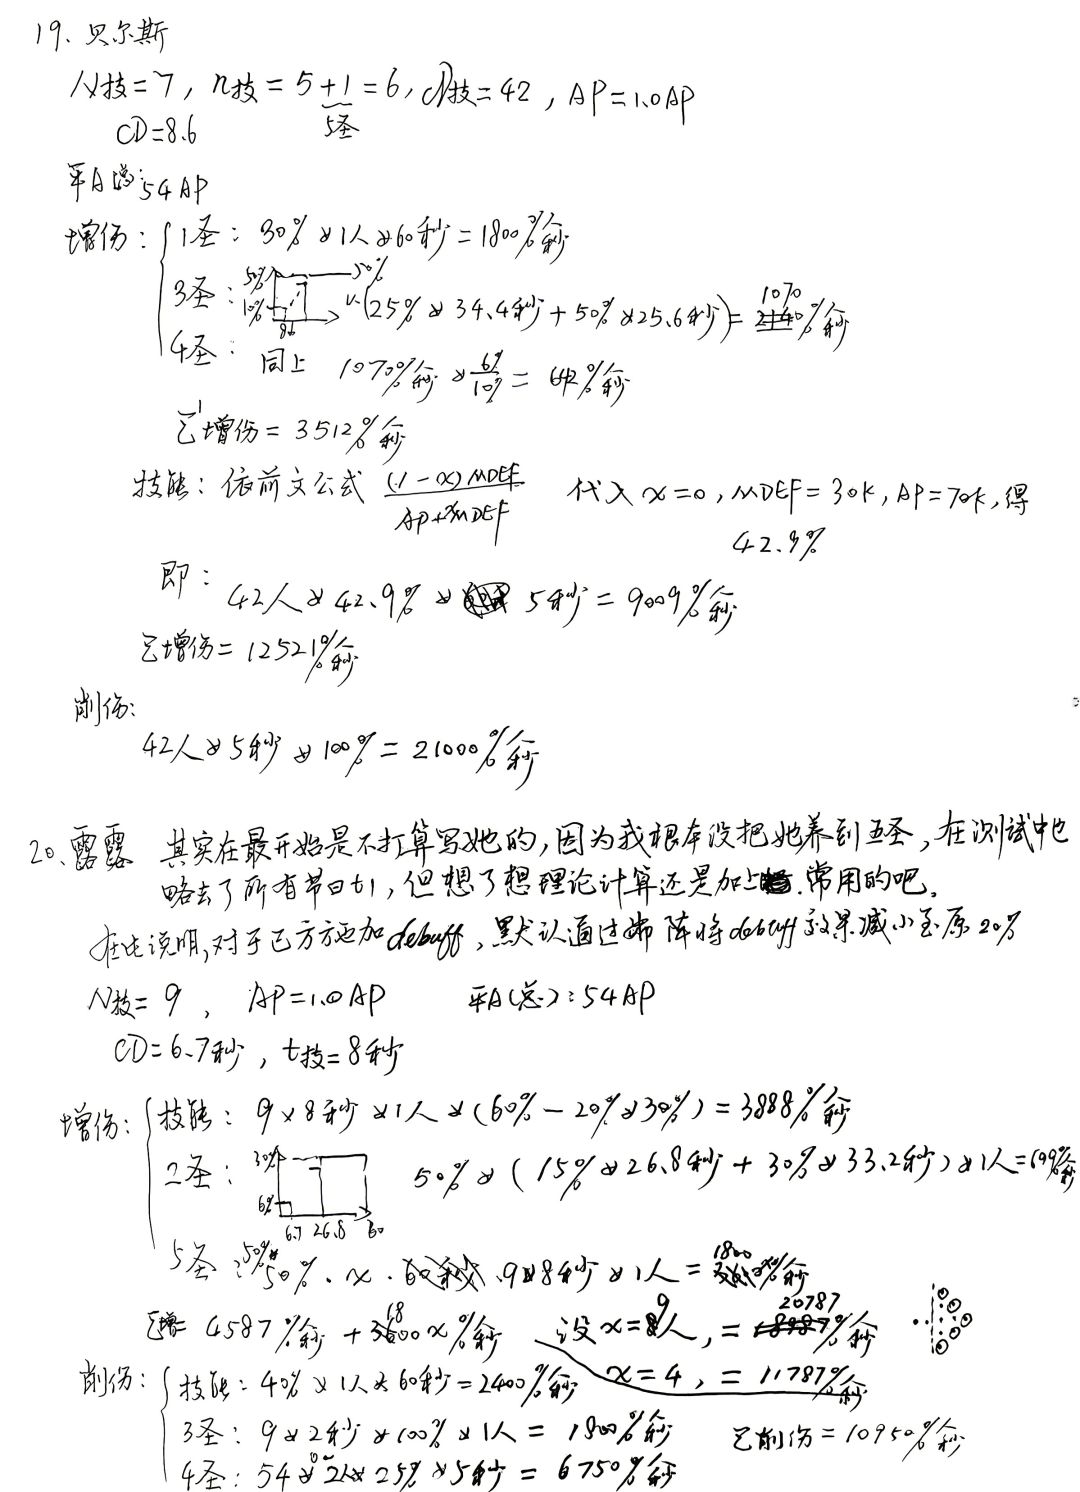 19. 贝尔斯
N技=7, n技=5+1=6, 总N技=42, AP=1.0AP
5圣
CD=8.6
平A总:54AP
增伤:
1圣: 30%×1人×60秒=1800%人/秒
3圣: 50% 50% 10% 8.6 (25%×34.4秒+50%×25.6秒)=1070%人/秒
4圣: 同上 1070%人/秒×6%/10%=642%人/秒
已增伤=3512%人/秒
技能: 依前文公式 (1-x)MDEF/AP+xMDEF 代入x=0, MDEF=30k, AP=70k, 得
42.9%
即: 42人×42.9%×5秒=9009%人/秒
总增伤=12521%人/秒
削伤:
42人×5秒×100%=21000%人/秒
20. 露露 其实在最开始是不打算写她的,因为我根本没把她养到五圣,在测试中也
略去了所有节日t1,但想了想理论计算还是加上常用的吧.
在此说明,对于己方施加debuff,默认通过娜阵将debuff效果减小至原20%
N技=9, AP=1.0AP 平A(总):54AP
CD=6.7秒, t技=8秒
增伤:
技能: 9×8秒×1人×(60%-20%×30%)=3888%人/秒
2圣: 30% 6% 6.7 26.8 60 50%×(15%×26.8秒+30%×33.2秒)×1人=699%人/秒
5圣: 50%×50%·x·9×8秒×1人=1800%人/秒
总增=4587%人/秒+1800x%人/秒 设x=9人,=20787%人/秒
x=4,=11787%人/秒
削伤:
技能: 40%×1人×60秒=2400%人/秒
3圣: 9×2秒×100%×1人=1800%人/秒 总削伤=10950%人/秒
4圣: 54×25%×5秒=6750%人/秒